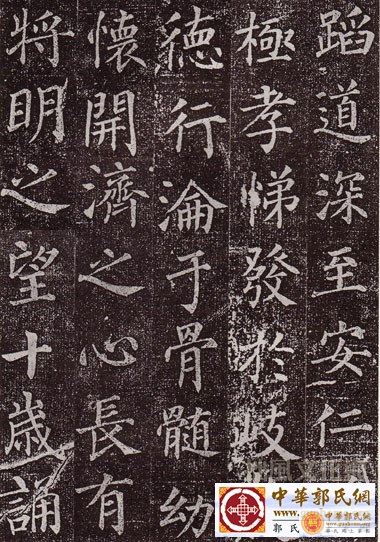 蹈道深至安仁
極孝悌發於岐
徳行淪于骨髓幼
懷開濟之心長有
將明之望十歳誦
中華郭氏網
www.
郭氏
中華郭氏網